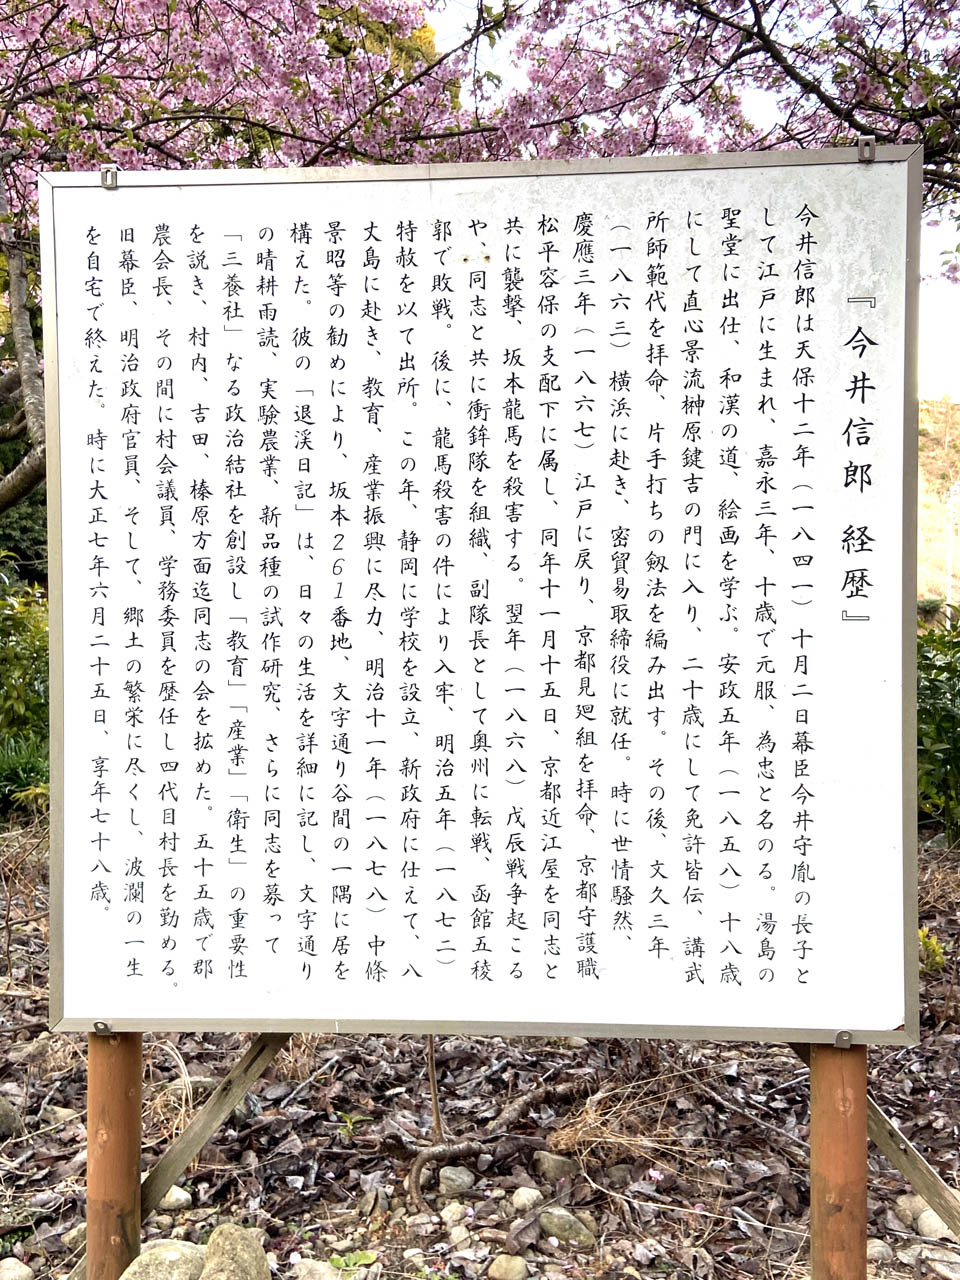 『今井信郎　経歴』
今井信郎は天保十二年（一八四一）十月二日幕臣今井守胤の長子と
して江戸に生まれ、嘉永三年、十歳で元服、為忠と名のる。湯島の
聖堂に出仕、和漢の道、絵画を学ぶ。安政五年（一八五八）十八歳
にして直心景流榊原鍵吉の門に入り、二十歳にして免許皆伝、講武
所師範代を拝命、片手打ちの剱法を編み出す。その後、文久三年
（一八六三）横浜に赴き、密貿易取締役に就任。時に世情騒然、
慶應三年（一八六七）江戸に戻り、京都見廻組を拝命、京都守護職
松平容保の支配下に属し、同年十一月十五日、京都近江屋を同志と
共に襲撃、坂本龍馬を殺害する。翌年（一八六八）戊辰戦争起こる
や、同志と共に衝鉾隊を組織、副隊長として奥州に転戦、函館五稜
郭で敗戦。後に、龍馬殺害の件により入牢、明治五年（一八七二）
特赦を以て出所。この年、静岡に学校を設立、新政府に仕えて、八
丈島に赴き、教育、産業振興に尽力、明治十一年（一八七八）中條
景昭等の勧めにより、坂本261番地、文字通り谷間の一隅に居を
構えた。彼の「退渓日記」は、日々の生活を詳細に記し、文字通り
の晴耕雨読、実験農業、新品種の試作研究、さらに同志を募って
「三養社」なる政治結社を創設し「教育」「産業」「衛生」の重要性
を説き、村内、吉田、榛原方面迄同志の会を拡めた。五十五歳で郡
農会長、その間に村会議員、学務委員を歴任し四代目村長を勤める。
旧幕臣、明治政府官員、そして、郷土の繁栄に尽くし、波瀾の一生
を自宅で終えた。時に大正七年六月二十五日、享年七十八歳。